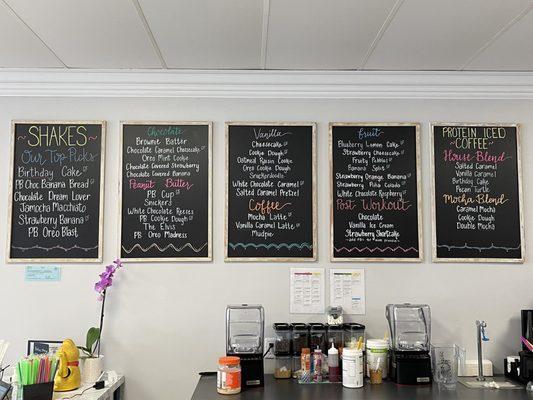 SHAKES
Our Top Picks
Birthday Cake
PB Choc Banana Bread
Chocolate Dream Lover
Jamocha Macchiato
Strawberry Banana
PB Oreo Blast
Chocolate
Brownie Batter
Chocolate Caramel Cheesecake
Oreo Mint Cookie
Chocolate Covered Strawberry
Chocolate Covered Banana
Peanut Butter
PB Cup
Snickers
White Chocolate Reeces
PB Cookie Dough
The Elvis
PB Oreo Madness
Vanilla
Cheesecake
Cookie Dough
Oatmeal Raisin Cookie
Oreo Cookie
Snickerdoodle
White Chocolate Caramel
Salted Caramel Pretzel
Coffee
Mocha Latte
Vanilla Caramel Latte
Mudpie
Fruit
Blueberry Lemon Cake
Strawberry Cheesecake
Fruity Pebbles
Banana Split
Strawberry Orange Banana
Strawberry Piña Colada
White Chocolate Raspberry
Post Workout
Chocolate
Vanilla Ice Cream
Strawberry Shortcake
PROTEIN ICED
COFFEE
House Blend
Salted Caramel
Vanilla Caramel
Birthday Cake
Pecan Turtle
Mocha Blend
Caramel Mocha
Cookie Dough
Double Mocha